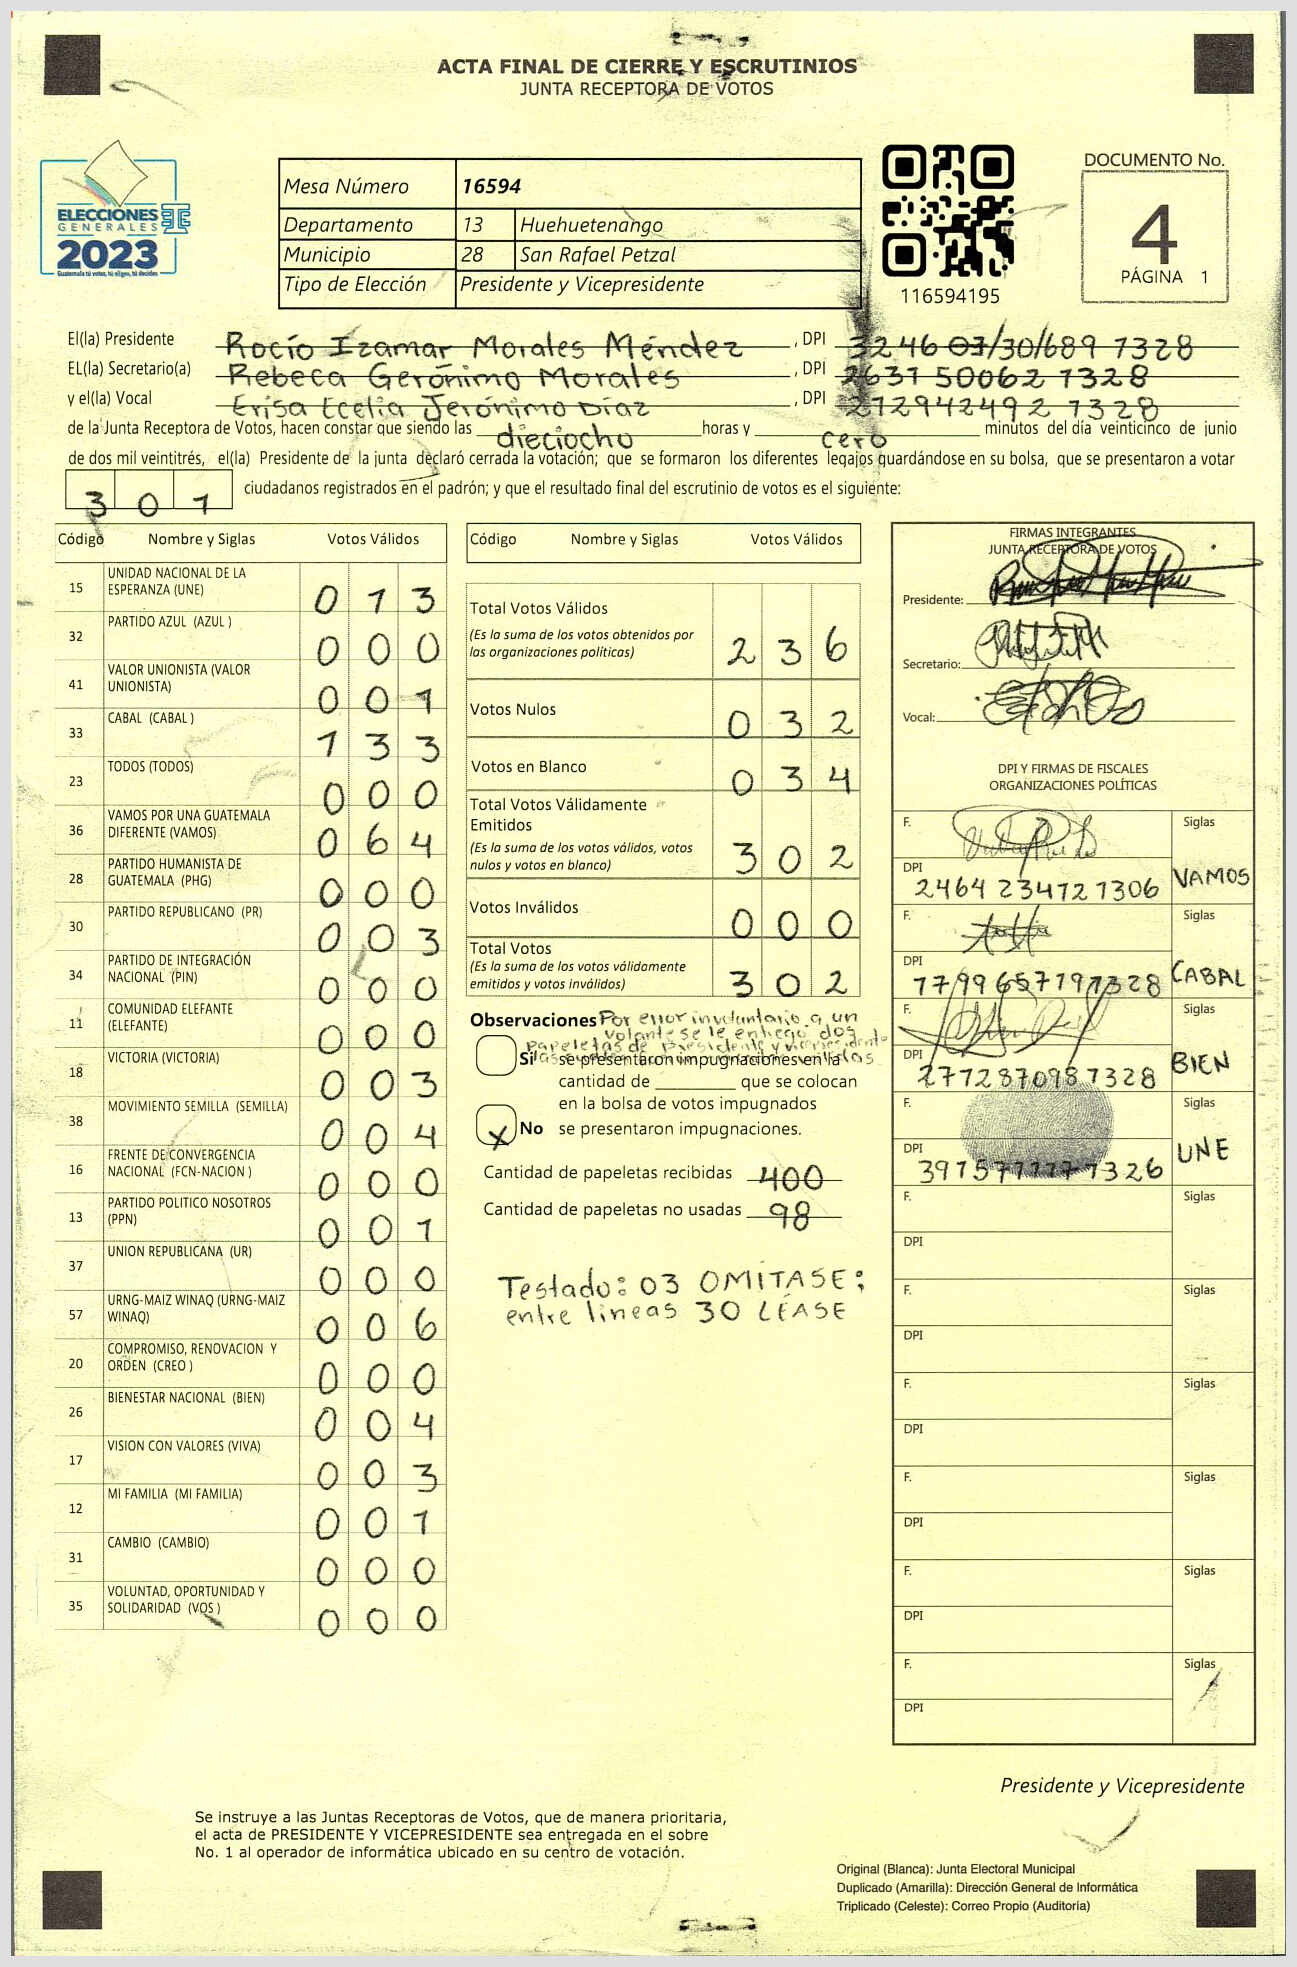 ACTA FINAL DE CIERRE Y ESCRUTINIOS
JUNTA RECEPTORA DE VOTOS
ELECCIONES
GENERALES
2023
Guatemala tú votas, tú eliges, tú decides
Mesa Número 16594
Departamento 13 Huehuetenango
Municipio 28 San Rafael Petzal
Tipo de Elección Presidente y Vicepresidente
116594195
DOCUMENTO No.
4
PÁGINA 1
El(la) Presidente Rocío Izamar Morales Méndez, DPI 3246 03/30/689 1328
EL(la) Secretario(a) Rebeca Gerónimo Morales, DPI 2637 50062 1328
y el(la) Vocal Erisa Ecelia Jerónimo Díaz, DPI 212942492 1328
de la Junta Receptora de Votos, hacen constar que siendo las dieciocho horas y cero minutos del día veinticinco de junio
de dos mil veintitrés, el(la) Presidente de la junta declaró cerrada la votación; que se formaron los diferentes legajos guardándose en su bolsa, que se presentaron a votar
301 ciudadanos registrados en el padrón; y que el resultado final del escrutinio de votos es el siguiente:
Código Nombre y Siglas Votos Válidos
15 UNIDAD NACIONAL DE LA ESPERANZA (UNE) 013
32 PARTIDO AZUL (AZUL ) 000
41 VALOR UNIONISTA (VALOR UNIONISTA) 001
33 CABAL (CABAL ) 133
23 TODOS (TODOS) 000
36 VAMOS POR UNA GUATEMALA DIFERENTE (VAMOS) 064
28 PARTIDO HUMANISTA DE GUATEMALA (PHG) 000
30 PARTIDO REPUBLICANO (PR) 003
34 PARTIDO DE INTEGRACIÓN NACIONAL (PIN) 000
11 COMUNIDAD ELEFANTE (ELEFANTE) 000
18 VICTORIA (VICTORIA) 003
38 MOVIMIENTO SEMILLA (SEMILLA) 004
16 FRENTE DE CONVERGENCIA NACIONAL (FCN-NACION ) 000
13 PARTIDO POLITICO NOSOTROS (PPN) 001
37 UNION REPUBLICANA (UR) 000
57 URNG-MAIZ WINAQ (URNG-MAIZ WINAQ) 006
20 COMPROMISO, RENOVACION Y ORDEN (CREO ) 000
26 BIENESTAR NACIONAL (BIEN) 004
17 VISION CON VALORES (VIVA) 003
12 MI FAMILIA (MI FAMILIA) 001
31 CAMBIO (CAMBIO) 000
35 VOLUNTAD, OPORTUNIDAD Y SOLIDARIDAD (VOS ) 000
Código Nombre y Siglas Votos Válidos
Total Votos Válidos 236
(Es la suma de los votos obtenidos por
las organizaciones políticas)
Votos Nulos 032
Votos en Blanco 034
Total Votos Válidamente
Emitidos 302
(Es la suma de los votos válidos, votos
nulos y votos en blanco)
Votos Inválidos 000
Total Votos 302
(Es la suma de los votos válidamente
emitidos y votos inválidos)
Observaciones Por error involuntario a un
votante se le entregó dos
papeletas de Presidente y vicepresidente
Si se presentaron impugnaciones en la
cantidad de ________ que se colocan
en la bolsa de votos impugnados
X No se presentaron impugnaciones.
Cantidad de papeletas recibidas 400
Cantidad de papeletas no usadas 98
Testado: 03 OMÍTASE;
entre líneas 30 LÉASE
FIRMAS INTEGRANTES
JUNTA RECEPTORA DE VOTOS
Presidente:
Secretario:
Vocal:
DPI Y FIRMAS DE FISCALES
ORGANIZACIONES POLÍTICAS
F. Siglas
DPI 2464 234721306 VAMOS
F. Siglas
DPI 1799657791328 CABAL
F. Siglas
DPI 2772870981328 BIEN
F. Siglas
DPI UNE
F. Siglas
DPI
F. Siglas
DPI
F. Siglas
DPI
F. Siglas
DPI
F. Siglas
DPI
F. Siglas
DPI
Presidente y Vicepresidente
Se instruye a las Juntas Receptoras de Votos, que de manera prioritaria,
el acta de PRESIDENTE Y VICEPRESIDENTE sea entregada en el sobre
No. 1 al operador de informática ubicado en su centro de votación.
Original (Blanca): Junta Electoral Municipal
Duplicado (Amarilla): Dirección General de Informática
Triplicado (Celeste): Correo Propio (Auditoria)